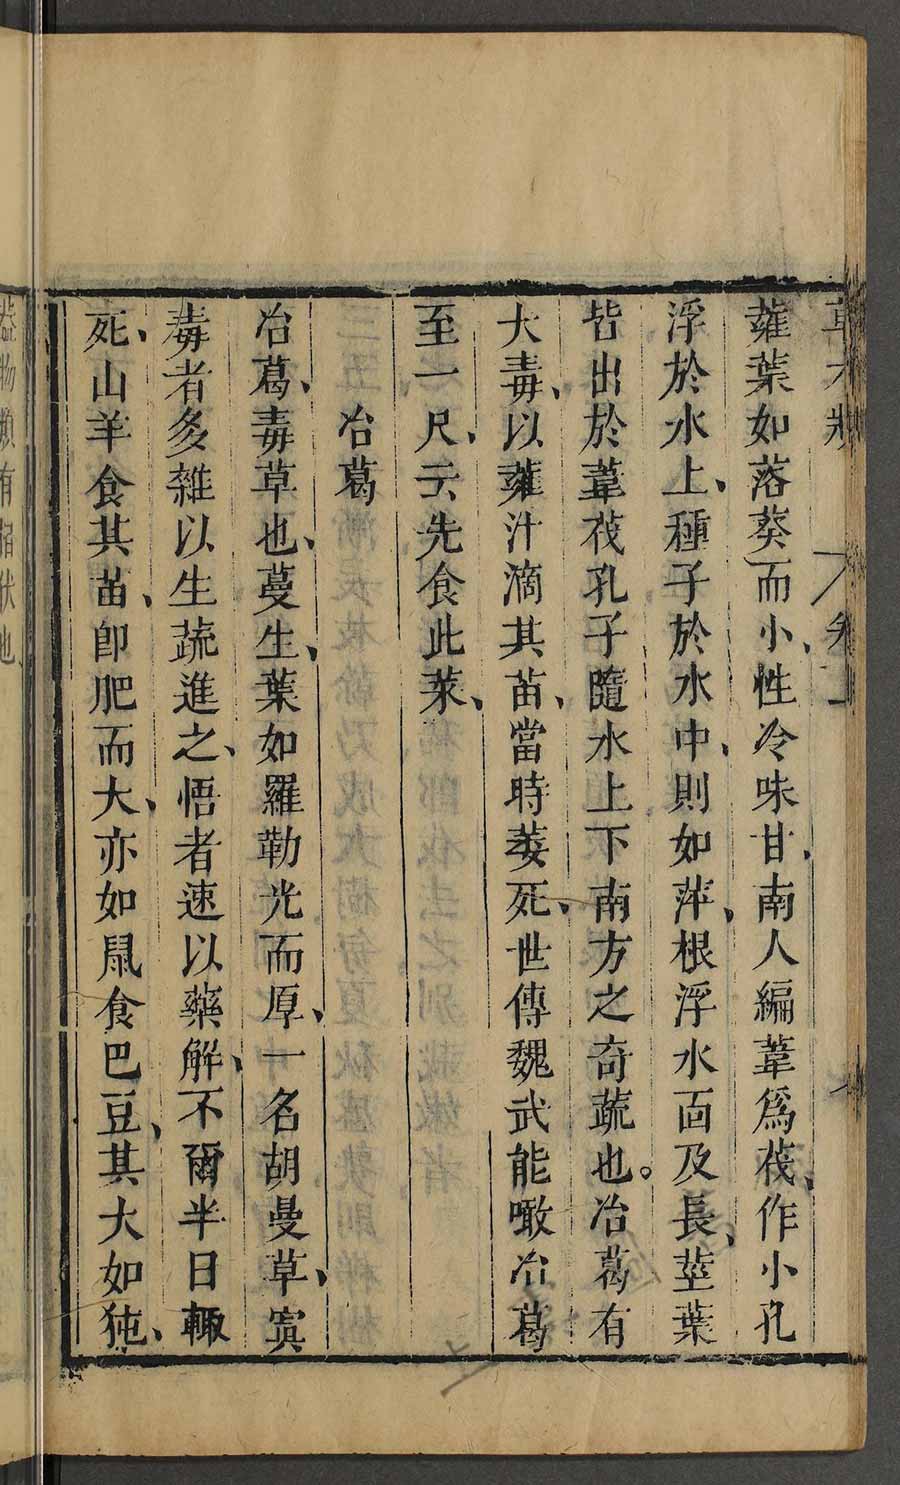 草木狀 卷上
蕹葉如落葵而小、性冷味甘、南人編葦爲茷、作小孔
浮於水上、種子於水中、則如萍、根浮水面及長、莖葉
皆出於葦茷孔子隨水上下南方之奇蔬也。冶葛有
大毒、以蕹汁滴其苗、當時萎死、世傳魏武能噉冶葛
至一尺、云先食此菜、
冶葛
冶葛、毒草也、蔓生、葉如羅勒光而厚、一名胡蔓草、寘
毒者多雜以生蔬進之、悟者速以藥解、不爾半日輙
死、山羊食其苗、卽肥而大、亦如鼠食巴豆、其大如㹠、
器物類有宿伏也、